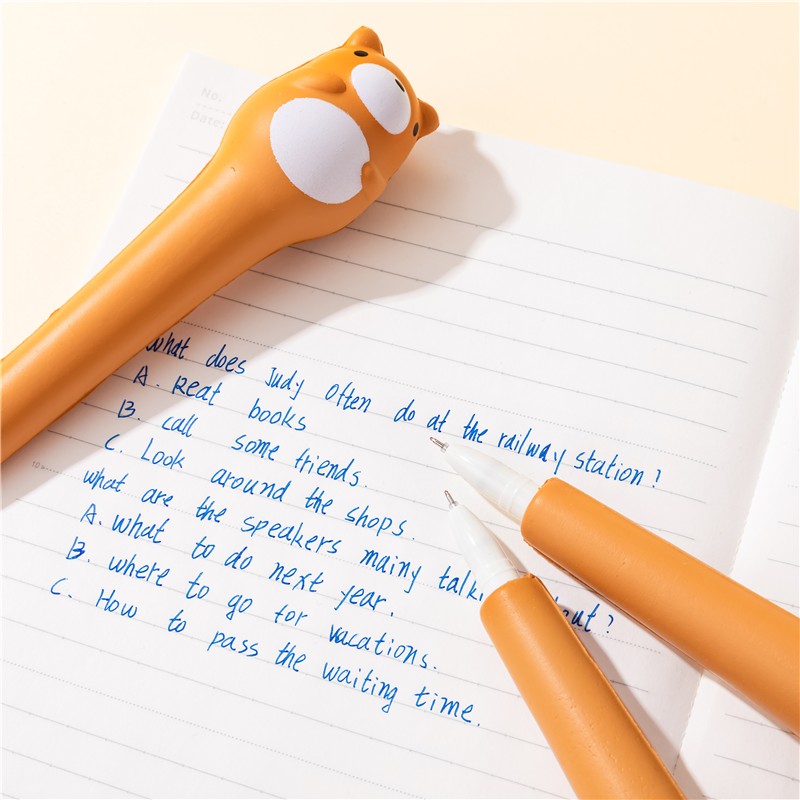 No.
Date:
What does Judy Often do at the railway station?
A. Reat books
B. call some friends.
C. Look around the shops.
what are the speakers mainy
A. what to do next year.
B. where to go for vacations.
C. How to pass the waiting time.